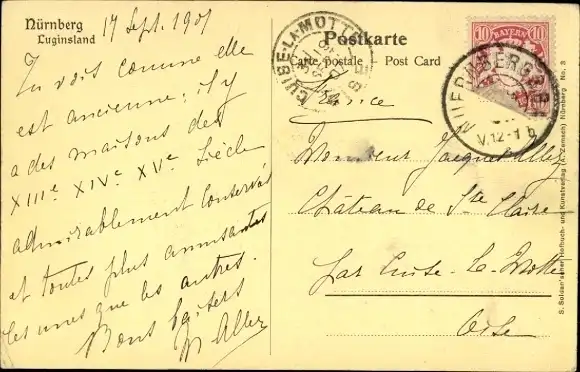 Nürnberg
Luginsland
17 Sept. 1901
Tu vois comme elle
est ancienne: il y
a des maisons des
XIIIe XIVe XVe Siècle
admirablement conservés
et toutes plus amusantes
les unes que les autres.
Bons baisers
Allez
Postkarte
Carte postale Post Card
France
Monsieur Jacques Allez
Château de Ste Claire
par Cuise-la-Motte
Oise
CUISE-LA-MOTTE
10 BAYERN 10
NUERNBERG
V.12-1
S. Soldan'sche Hofbuch- und Kunstverlag (A. Zemsch) Nürnberg No. 3